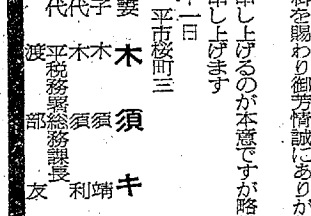 料を賜わり御芳情誠にありが
し上げるのが本意ですが略
し上げます
一日
平市桜町三
妻 木須キ
子 木須靖
代 木須利
代 平税務署総務課長
渡部友